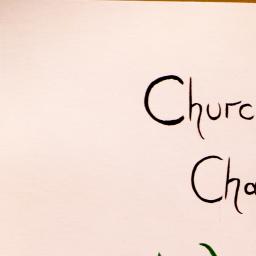 Churc
Cha